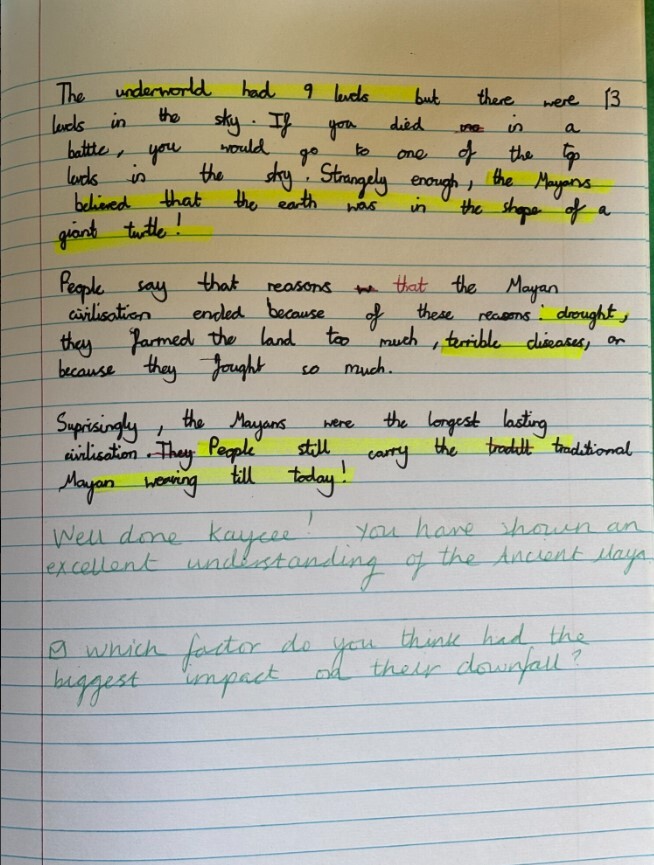 The underworld had 9 levels but there were 13
levels in the sky. If you died in a
battle, you would go to one of the top
levels in the sky. Strangely enough, the Mayans
believed that the earth was in the shape of a
giant turtle!
People say that reasons that the Mayan
civilisation ended because of these reasons: drought,
they farmed the land too much, terrible diseases, or
because they fought so much.
Suprisingly, the Mayans were the longest lasting
civilisation. They People still carry the traditt traditional
Mayan weaving till today!
Well done Kaycee! You have shown an
excellent understanding of the Ancient Maya
Q which factor do you think had the
biggest impact on their downfall?